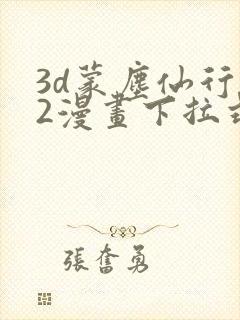 3d蒙塵仙行
2漫畫下拉式
張奮勇